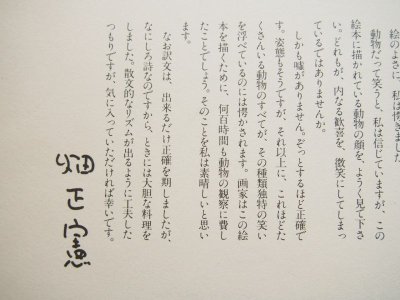 絵のよさに、私は愕きました。
動物だって笑うと、私は信じていますが、この
絵本に描かれている動物の顔を、ようく見て下さ
い。どれもが、内なる歓喜を、微笑にしてしまっ
ているではありませんか。
しかも嘘がありません。ぞっとするほど正確で
す。姿態もそうですが、それ以上に、これほどた
くさんいる動物のすべてが、その種類独特の笑い
を浮べているのには愕かされます。画家はこの絵
本を描くために、何百時間も動物の観察に費し
たことでしょう。そのことを私は素晴しいと思い
ます。
なお訳文は、出来るだけ正確を期しましたが、
なにしろ詩なのですから、ときには大胆な料理を
しました。散文的なリズムが出るように工夫した
つもりですが、気に入っていただければ幸いです。
畑正憲